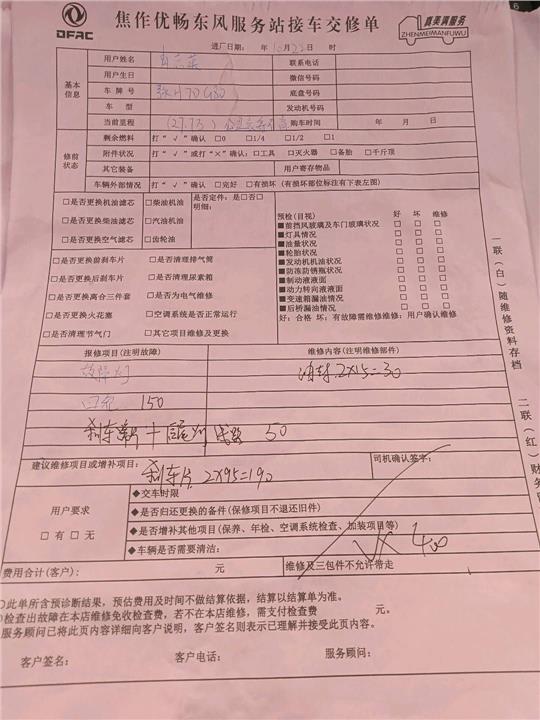 DFAC
焦作优畅东风服务站接车交修单
真美满服务
ZHENMEIMANFUWU
6
进厂日期： 年 10月23日 时
基本信息
用户姓名 联系电话
用户生日 微信号码
车牌号 底盘号码
车 型 发动机号码
当前里程 购车时间 年 月 日
修前状态
剩余燃料 打“√”确认 □0 □1/4 □1/2 □1
附件状况 打“√”或打“×”确认：□工具 □灭火器 □备胎 □千斤顶
其它装备 用户寄存物品
车辆外部情况 打“√”确认 □完好 □有损坏（有损坏部位标注有下表左图）
□是否更换机油滤芯 □柴油机油 是否定件：是□否□
明细：
□是否更换柴油滤芯 □汽油机油
□是否更换空气滤芯 □齿轮油
□是否更换前刹车片 □是否清理排气筒
□是否更换后刹车片 □是否清理尿素箱
□是否更换离合三件套 □是否为电气维修
□是否更换火花塞 □空调系统是否正常运行
□是否清理节气门 □其它项目维修及更换
预检（目视） 好 坏 维修
■前挡风玻璃及车门玻璃状况 □ □ □
■灯具情况 □ □ □
■油量状况 □ □ □
■轮胎状况 □ □ □
■发动机机油状况 □ □ □
■防冻防锈瓶状况 □ □ □
■制动液液面 □ □ □
■动力转向液液面 □ □ □
■变速箱漏油情况 □ □ □
■后桥漏油情况 □ □ □
好：合格 坏：有故障需维修维修：用户确认维修
报修项目（注明故障） 维修内容（注明维修部件）
故障灯 2×15=30
150
50
建议维修项目或增补项目： 刹车片 2×95=190
司机确认签字：
用户要求
□有 □无
◆交车时限
◆是否归还更换的备件（保修项目不退还旧件）
◆是否增补其他项目（保养、年检、空调系统检查、加装项目等）
◆车辆是否需要清洁：
400
费用合计（客户）： 元 维修及三包件不允许带走
此单所含预诊断结果，预估费用及时间不做结算依据，结算以结算单为准。
检查出故障在本店维修免收检查费，若不在本店维修，需支付检查费 元。
服务顾问已将此页内容详细向客户说明，客户签名则表示已理解并接受此页内容。
客户签名： 客户电话： 服务顾问：
一联（白）随维修资料存档
二联（红）财务